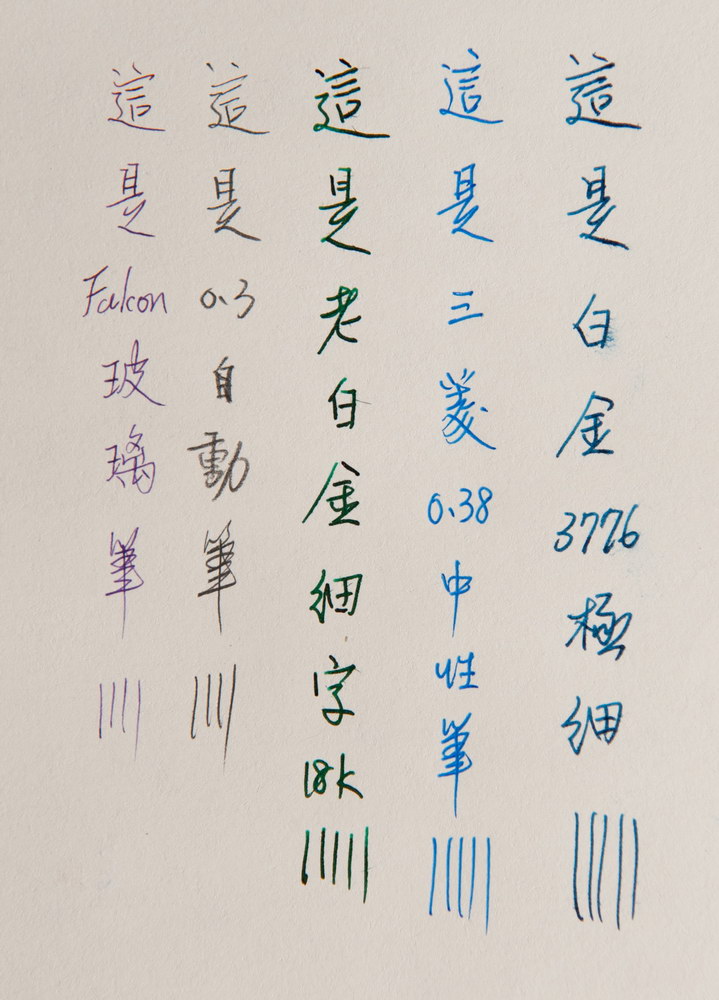 這是白金3776極細
這是三菱0.38中性筆
這是老白金細字18K
這是0.3自動筆
這是Falcon玻璃筆